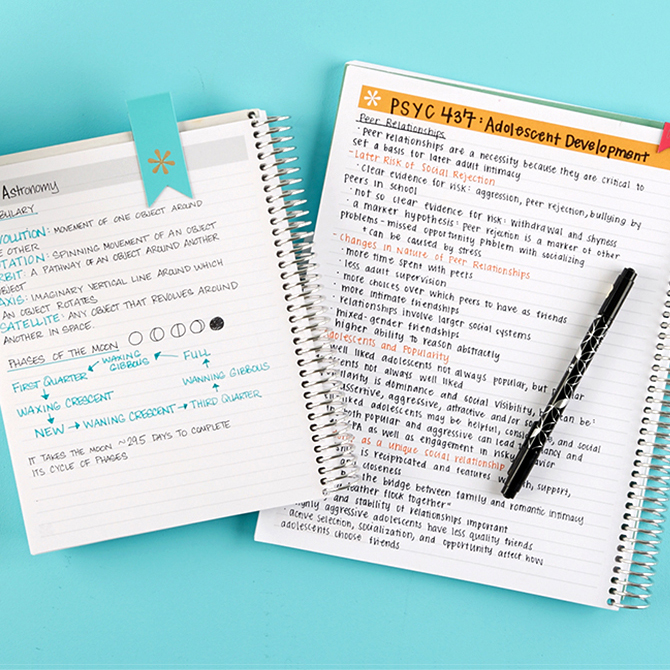 Astronomy
BULARY
VOLUTION: MOVEMENT OF ONE OBJECT AROUND
E OTHER
TATION: SPINNING MOVEMENT OF AN OBJECT
RBIT: A PATHWAY OF AN OBJECT AROUND ANOTHER
BJECT
AXIS: IMAGINARY VERTICAL LINE AROUND WHICH
AN OBJECT ROTATES
SATELLITE: ANY OBJECT THAT REVOLVES AROUND
ANOTHER IN SPACE.
PHASES OF THE MOON
WAXING GIBBOUS FULL
FIRST QUARTER
WANNING GIBBOUS
WAXING CRESCENT
NEW WANING CRESCENT THIRD QUARTER
IT TAKES THE MOON ~29.5 DAYS TO COMPLETE
ITS CYCLE OF PHASES
PSYC 437: Adolescent Development
Peer Relationships
· peer relationships are a necessity because they are critical to
set a basis for later adult intimacy
- Later Risk of Social Rejection
· Clear evidence for risk: aggression, peer rejection, bullying by
peers in school
· not so clear evidence for risk: withdrawal and shyness
· a marker hypothesis: peer rejection is a marker of other
problems - missed opportunity problem with socializing
* can be caused by stress
- Changes in Nature of Peer Relationships
· more time spent with peers
· less adult supervision
· more choices over which peers to have as friends
· more intimate friendships
· relationships involve larger social systems
· mixed-gender friendships
· higher ability to reason abstractly
Adolescents and Popularity
well liked adolescents not always popular, but popular
cents not always well liked
ularity is dominance and social visibility, can be:
assertive, aggressive, attractive and/or
liked adolescents may be helpful, and social
oth popular and aggressive can lead and
PA as well as engagement in risky behavior
as a unique social relationship
is reciprocated and features support,
closeness
the bridge between family and romantic intimacy
feather flock together"
and stability of relationships important
highly aggressive adolescents have less quality friends
· active selection, socialization, and opportunity affect how
adolescents choose friends